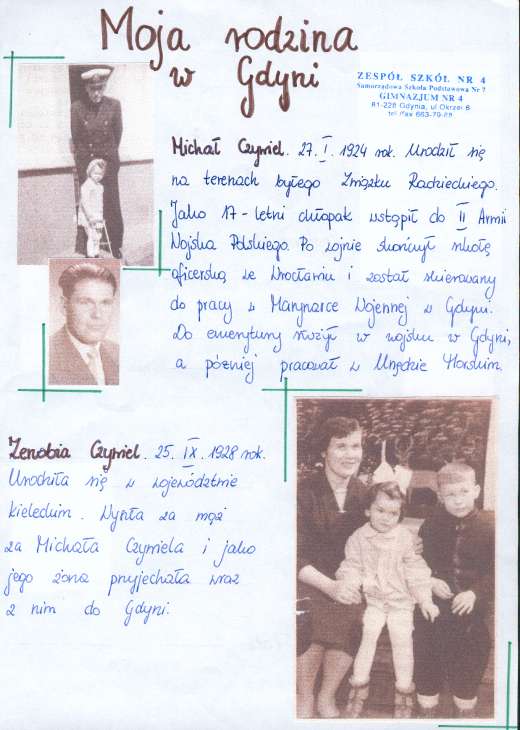 Moja rodzina
w Gdyni
ZESPÓŁ SZKÓŁ NR 4
Samorządowa Szkoła Podstawowa Nr 7
GIMNAZJUM NR 4
81-228 Gdynia, ul Okrzei 6
tel /fax 663-79-
Michał Czywiel. 27. I. 1924 rok. Urodził się
na terenach byłego Związku Radzieckiego.
Jako 17-letni chłopak wstąpił do II Armii
Wojska Polskiego. Po wojnie skończył szkołę
oficerską we Wrocławiu i został skierowany
do pracy w Marynarce Wojennej w Gdyni.
Do emerytury służył w wojsku w Gdyni,
a później pracował w Urzędzie Morskim.
Zenobia Czywiel. 25. IX. 1928 rok.
Urodziła się w województwie
kieleckim. Wyszła za mąż
za Michała Czywiela i jako
jego żona przyjechała wraz
z nim do Gdyni.